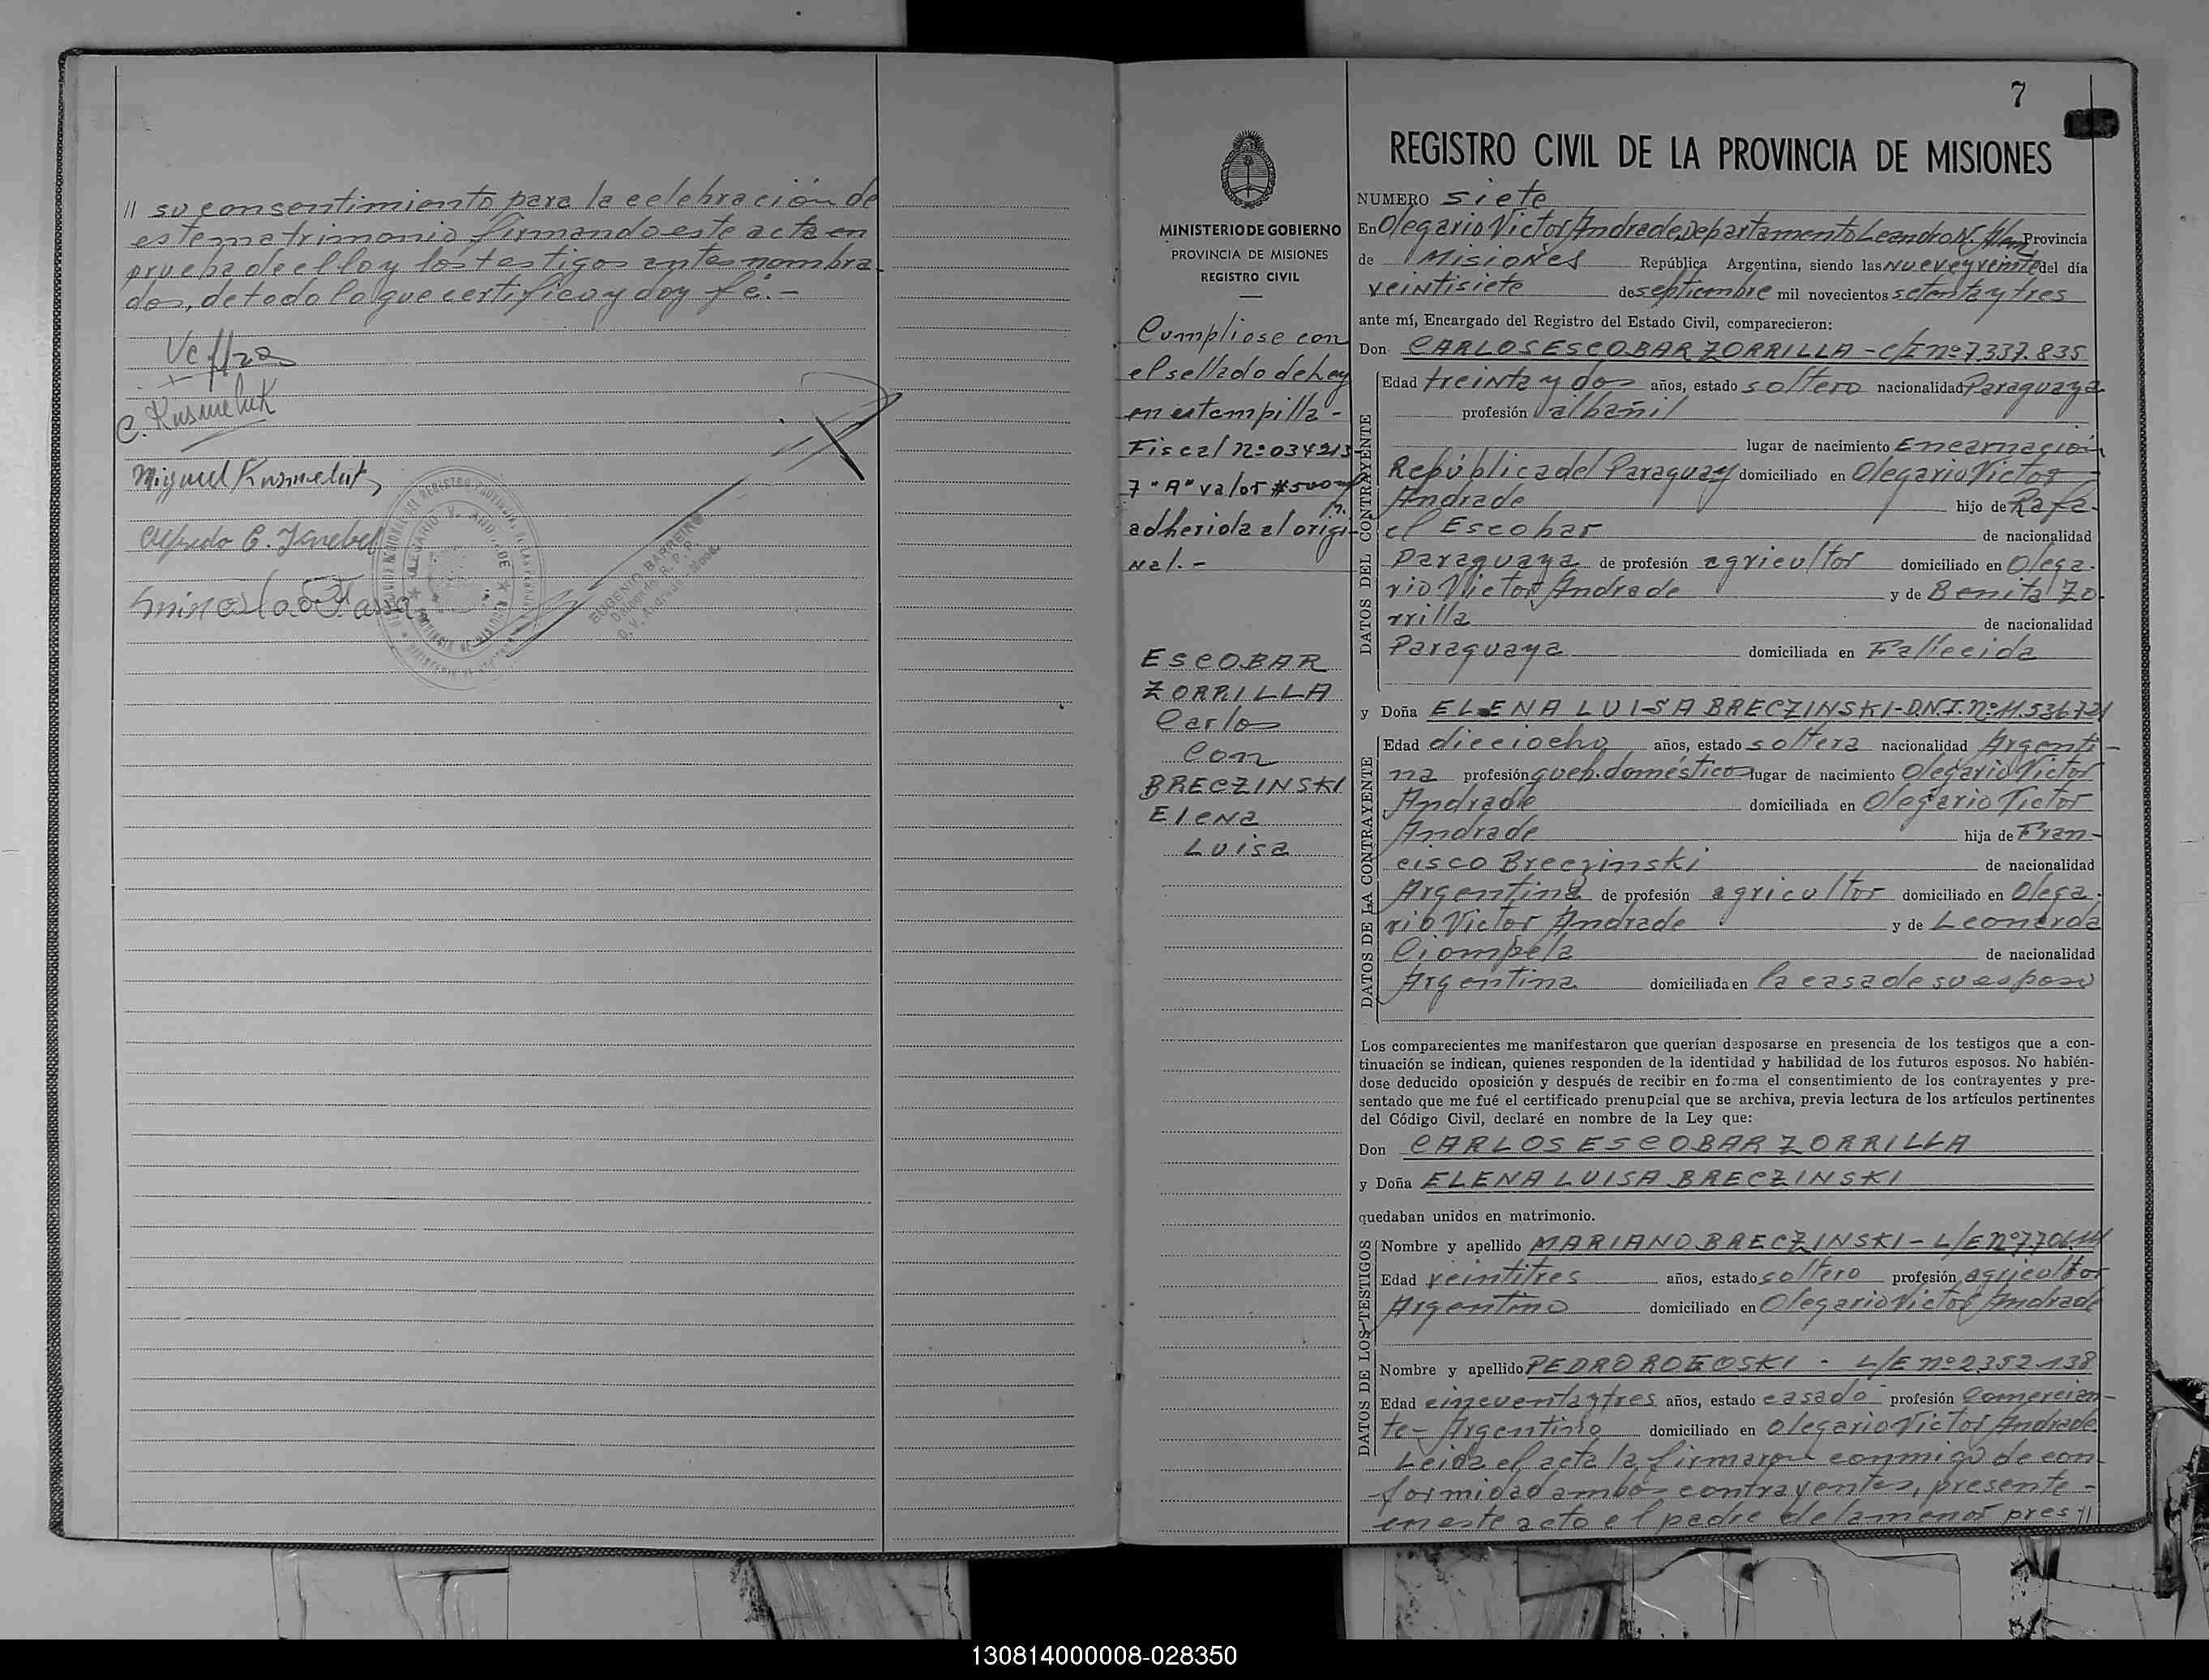 // su consentimiento para la celebración de
este matrimonio firmando este acta en
prueba de ello y los testigos antes nombra-
dos, de todo lo que certifico y doy fé.-
C. Kusmeluk
Miguel Kusmeluk
Alfredo C. Knebel
EUGENIO BARRERO
Delegado R. P. P.
7
REGISTRO CIVIL DE LA PROVINCIA DE MISIONES
MINISTERIO DE GOBIERNO
PROVINCIA DE MISIONES
REGISTRO CIVIL
Cumpliose con
el sellado de Ley
en estampilla -
Fiscal nº 034213
7 "A" valor $500 m/n.
adherida al origi-
nal.-
ESCOBAR
ZORRILLA
Carlos
Con
BRECZINSKI
Elena
Luisa
NUMERO siete
En Olegario Victor Andrade, Departamento Leandro N. Alem Provincia
de Misiones República Argentina, siendo las nueve y veinte del día
veintisiete de septiembre mil novecientos setenta y tres
ante mí, Encargado del Registro del Estado Civil, comparecieron:
Don CARLOS ESCOBAR ZORRILLA - C/I nº 7.337.835
DATOS DEL CONTRAYENTE
Edad treinta y dos años, estado soltero nacionalidad Paraguaya
profesión albañil
lugar de nacimiento Encarnación
República del Paraguay domiciliado en Olegario Victor
Andrade hijo de Rafa-
el Escobar de nacionalidad
Paraguaya de profesión agricultor domiciliado en Olega-
rio Victor Andrade y de Benita Zo-
rrilla de nacionalidad
Paraguaya domiciliada en Fallecida
y Doña ELENA LUISA BRECZINSKI - D.N.I. nº 11.536.721
DATOS DE LA CONTRAYENTE
Edad dieciocho años, estado soltera nacionalidad Argenti-
na profesión queh. domésticos lugar de nacimiento Olegario Victor
Andrade domiciliada en Olegario Victor
Andrade hija de Fran-
cisco Breczinski de nacionalidad
Argentina de profesión agricultor domiciliado en Olega-
rio Victor Andrade y de Leonarda
Ciompela de nacionalidad
Argentina domiciliada en la casa de su esposo
Los comparecientes me manifestaron que querían desposarse en presencia de los testigos que a con-
tinuación se indican, quienes responden de la identidad y habilidad de los futuros esposos. No habién-
dose deducido oposición y después de recibir en forma el consentimiento de los contrayentes y pre-
sentado que me fué el certificado prenupcial que se archiva, previa lectura de los artículos pertinentes
del Código Civil, declaré en nombre de la Ley que:
Don CARLOS ESCOBAR ZORRILLA
y Doña ELENA LUISA BRECZINSKI
quedaban unidos en matrimonio.
DATOS DE LOS TESTIGOS
Nombre y apellido MARIANO BRECZINSKI - L/E nº
Edad veintitres años, estado soltero profesión agricultor
Argentino domiciliado en Olegario Victor Andrade
Nombre y apellido PEDRO ROEOSKI - L/E nº 2.352.138
Edad cincuenta y tres años, estado casado profesión Comercian-
te - Argentino domiciliado en Olegario Victor Andrade.
Leida el acta la firmaron conmigo de con
formidad ambos contrayentes, presente -
en este acto el padre de la menor pres //
130814000008-028350